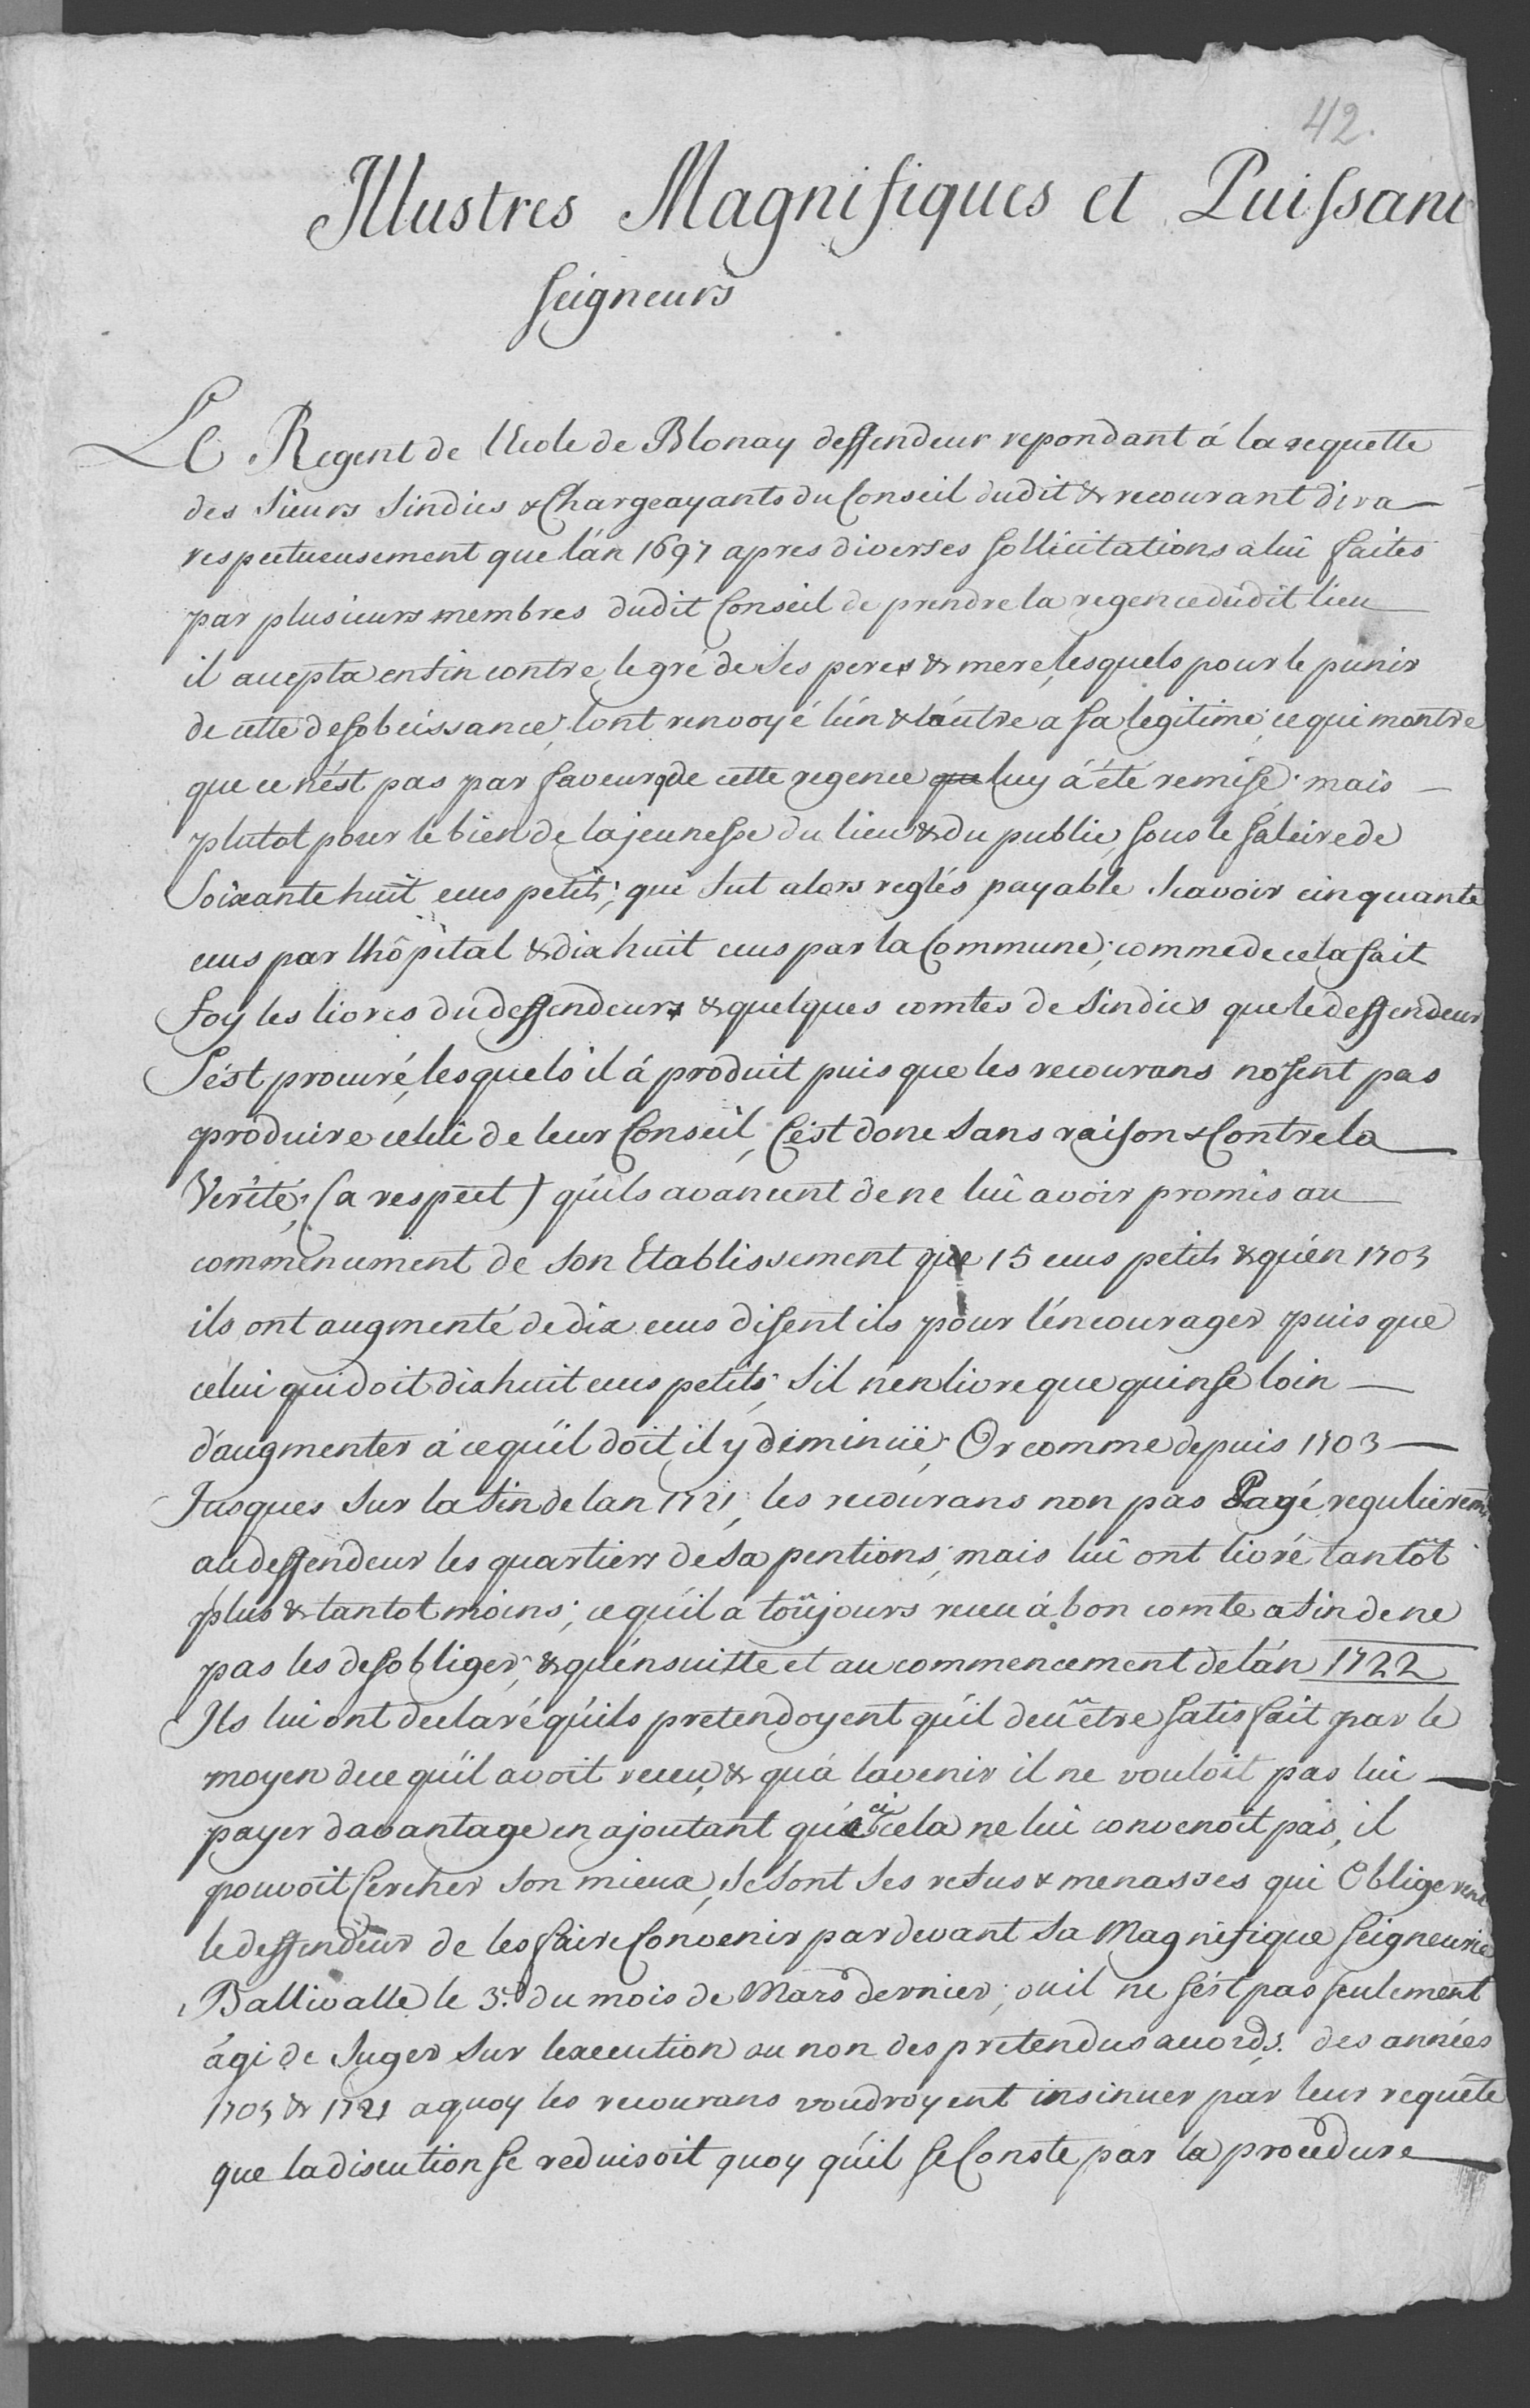 42.
Illustres Magnifiques et Puissan
Seigneurs
Le Regent de l'Ecole de Blonay deffendeur repondant á la requette
des Sieurs Sindics & Chargeayants du Conseil dudit & recourant dira
respectueusement que lán 1697 apres diverses sollicitations a lui faites
par plusieurs membres dudit Conseil de prendre la regence dudit lieu
il accepta enfin contre le gré de ses peres & mere, lesquels pour le punir
de cette desobeissance, lont renvoyé lún & láutre a sa legitime, ce qui montre
que ce nést pas par faveur que cette regence luy á été remise; mais
plutot pour le bien de la jeunesse du lieu & du public, sous le saleire de
Soixante huit ecus petits; qui fut alors reglés payable scavoir cinquante
ecus par lhôpital & dix huit ecus par la Commune; comme de cela fait
foy les livres du deffendeur & quelques comtes de sindics que le deffendeur
Sést procuré, lesquels il á produit puis que les recourans nosent pas
produire celui de leur Conseil, Cést donc sans raison & Contre la
Verité, (a respect) quíls avancent de ne lui avoir promis au
commencement de son Etablissement que 15 ecus petits & quén 1703
ils ont augmenté de dix ecus disent ils pour léncourager puis que
celui qui doit dix huit ecus petits, sil nen livre que quinse loin
dáugmenter á ce quíl doit, il y diminuë; Or comme depuis 1703
Jusques sur la fin de lan 1721, les recourans non pas Payé regulierem
au deffendeur les quartiers de sa pentions; mais lui ont livré tantôt
plus & tantot moins; ce quíl a toûjours receu á bon comte afin de ne
pas les desobliger, & quénsuitte et au commencement de lán 1722
Ils lui ont declaré quíls pretendoyent quíl deut être satisfait par le
moyen de ce quíl avoit receu, & quá lavenir il ne vouloit pas lui
payer davantage en ajoutant que si cela ne lui convenoit pas, il
pouvoit Cercher son mieux, se sont ses refus & menasses qui Obligeren
le deffendeur de les faire Convenir par devant sa Magnifique Seigneurie
Ballivalle le 3e. du mois de Mars dernier; ou il ne sést pas seulement
ági de Juger sur lexecution ou non des pretendus accords. des années
1703 & 1721 a quoy les recourans voudroyent insinuer par leur requête
que la discution se reduisoit quoy quíl se Conste par la procedure